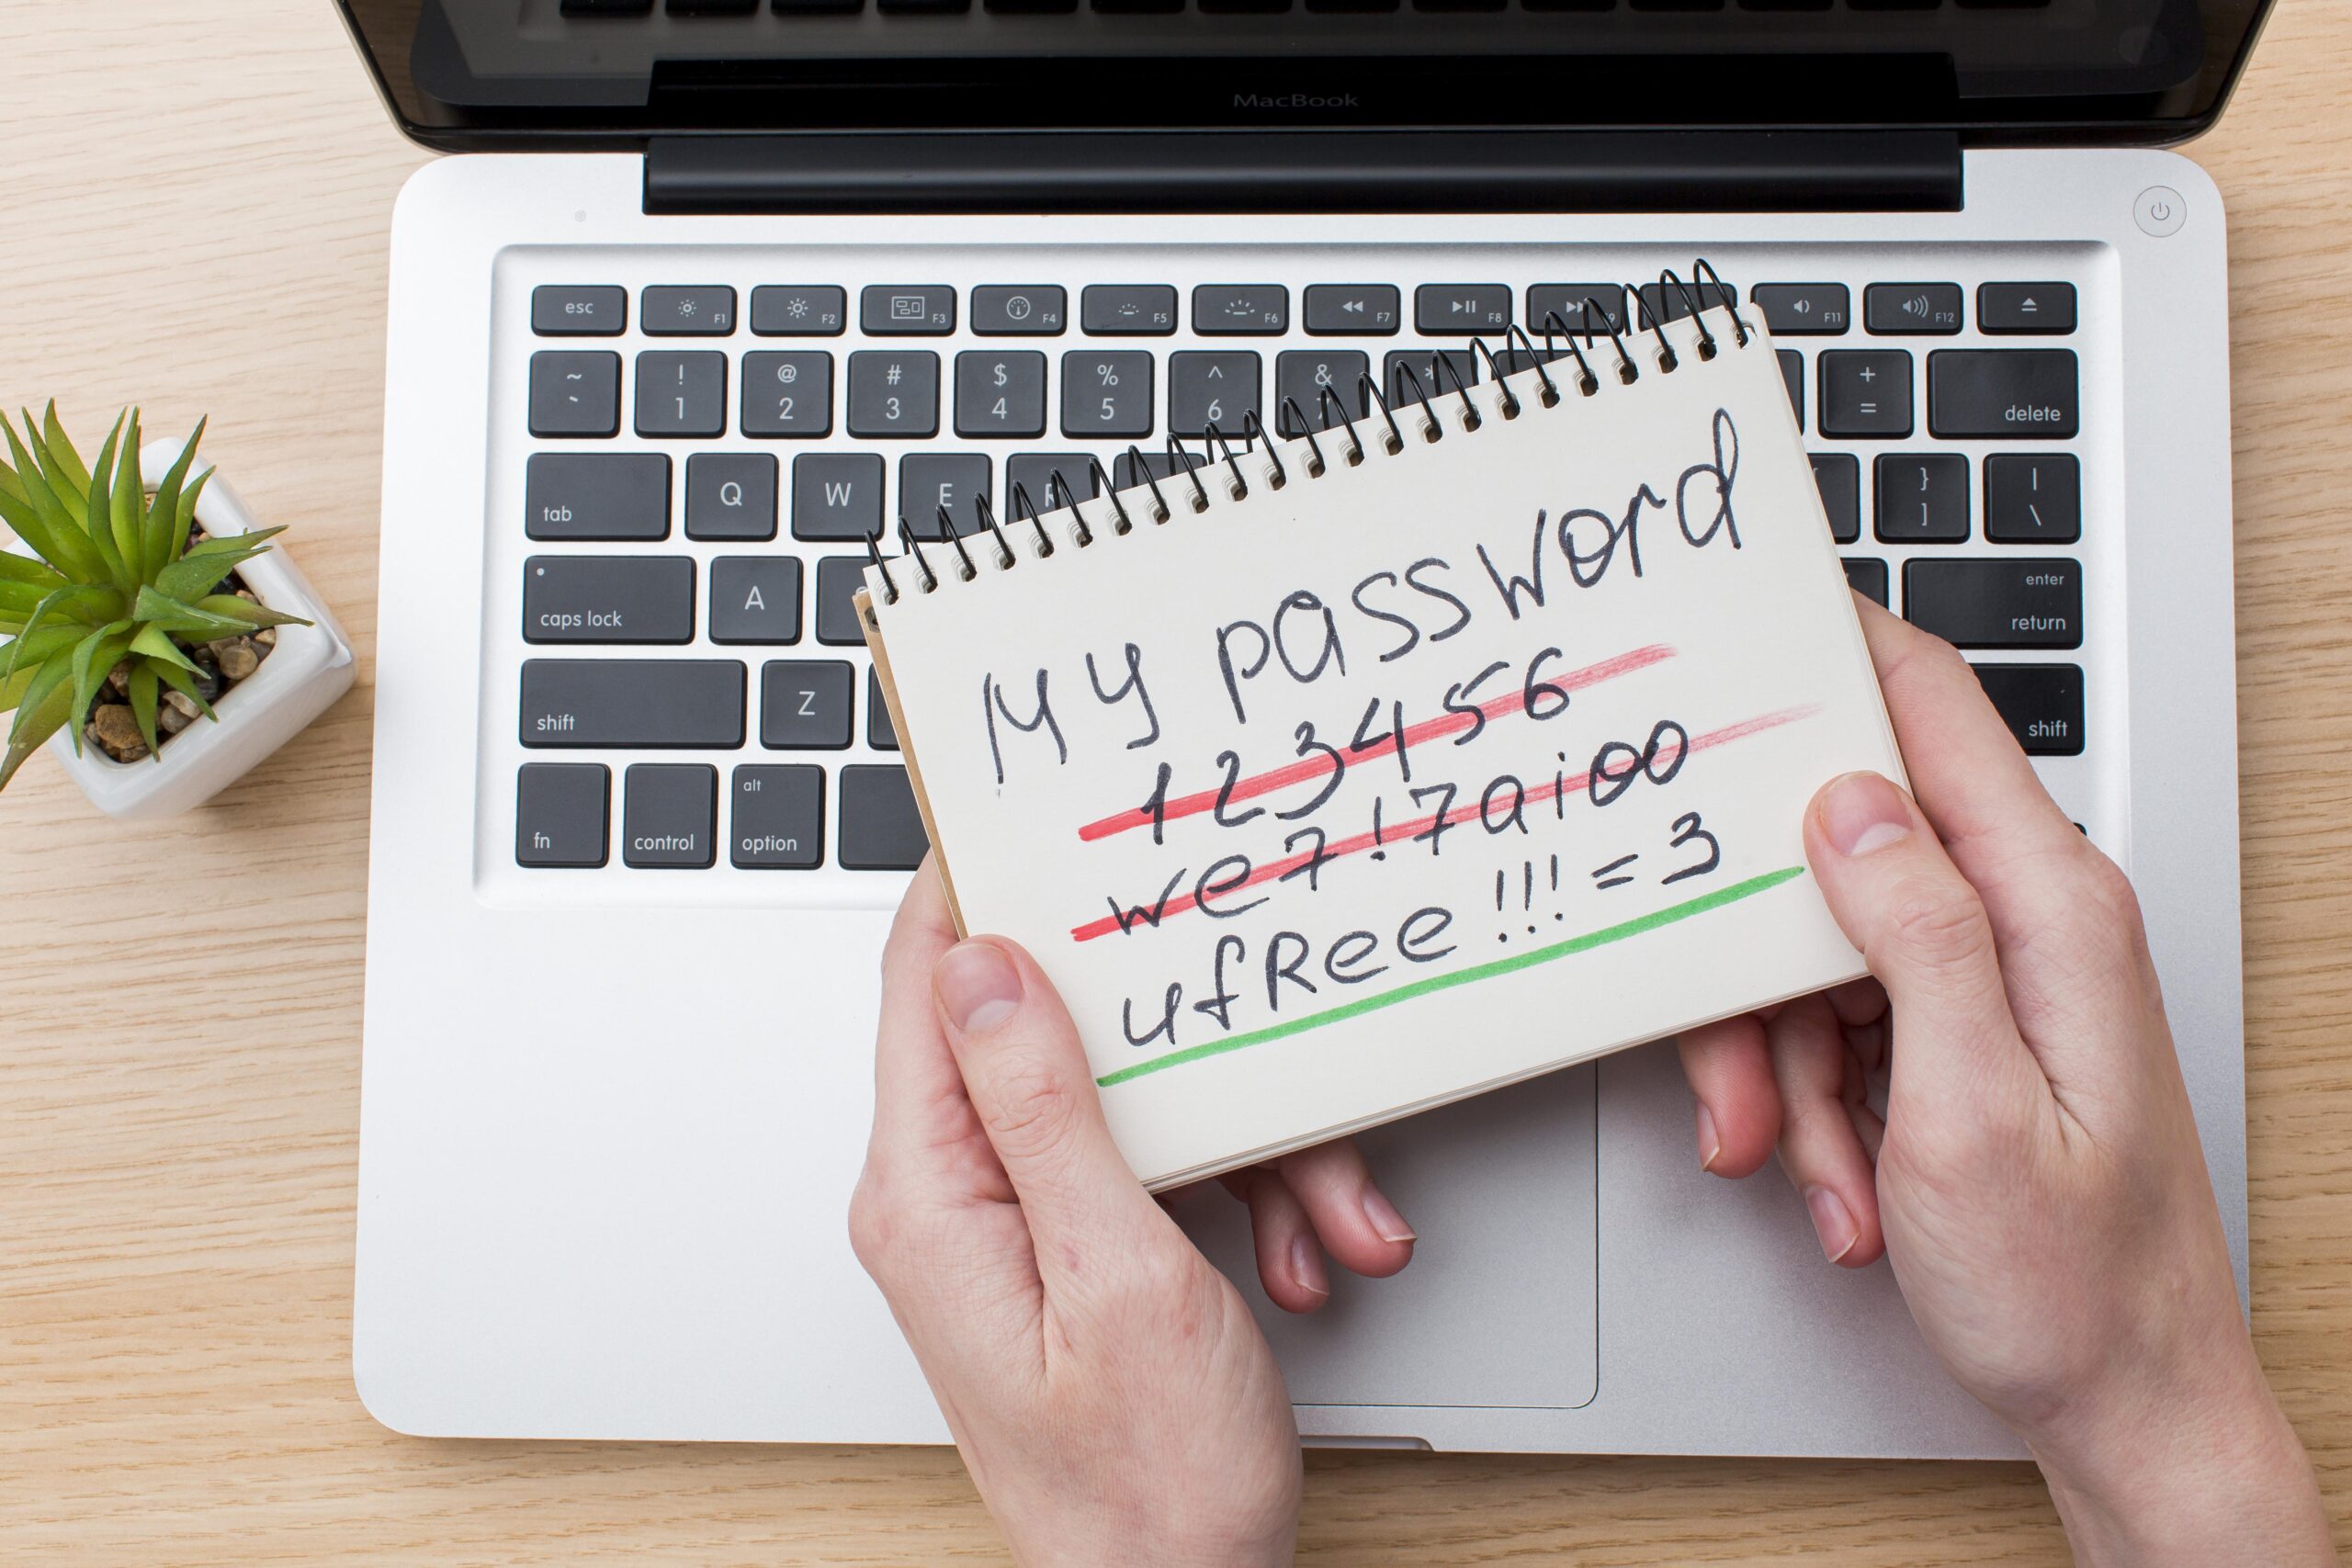 MacBook
esc F1 F2 F3 F4 F5 F6 F7 F8 9 F11 F12
~ ! @ # $ % ^ & * +
` 1 2 3 4 5 6 7 = delete
tab Q W E R } ] | \
caps lock A enter return
shift Z shift
fn control alt option
My password
123456
we7!7aioo
ufRee!!!=3